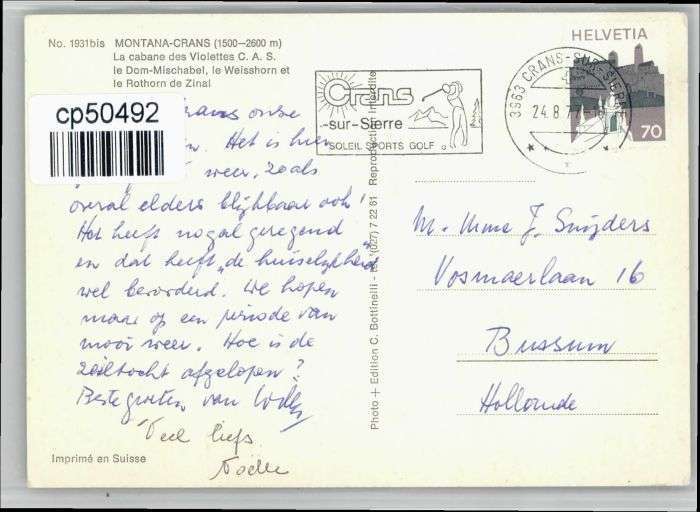 No. 1931bis MONTANA-CRANS (1500–2600 m)
La cabane des Violettes C. A. S.
le Dom-Mischabel, le Weisshorn et
le Rothorn de Zinal
cp50492
onze
Het is hier
weer, zoals
overal elders blijkbaar ook!
Het heeft nogal geregend
en dat heeft „de huiselijkheid
wel bevorderd. We hopen
maar op een periode van
mooi weer. Hoe is de
zeiltocht afgelopen?
Beste groeten van
Veel liefs
Imprimé en Suisse
Photo + Edition C. Bottinelli - (027) 7 22 81 Reproduction interdite
Crans
-sur-Sierre
SOLEIL SPORTS GOLF
3963 CRANS-SUR-SIERRE
24.8.77
HELVETIA
70
M. Mme J. Snijders
Vosmaerlaan 16
Bussum
Hollande